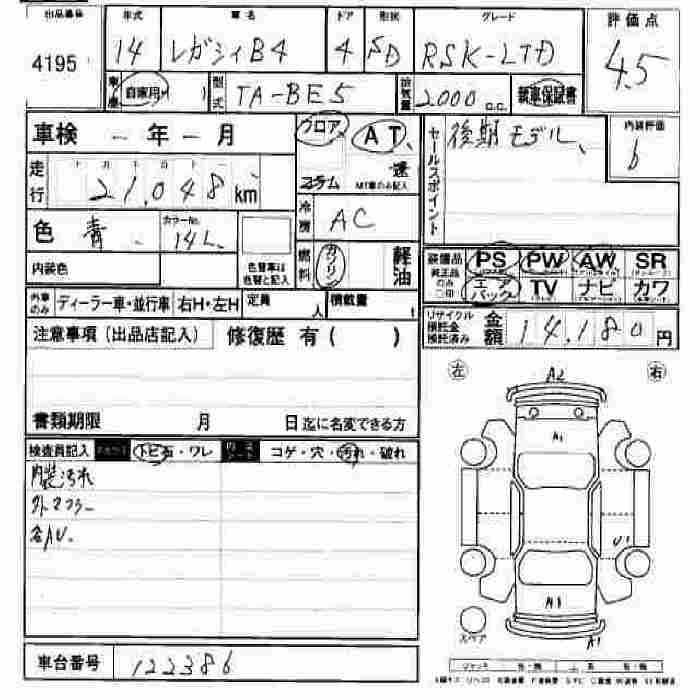 出品番号 年式 車名 ドア 形状 グレード 評価点
4195 14 レガシィB4 4 SD RSK-LTD 4.5
車歴 自家用 型式 TA-BE5 排気量 2000 c.c. 新車保証書
車検 - 年 - 月 フロア AT セールスポイント 後期モデル、 内装評価
走行 21,048 km コラム 速 MT車のみ記入 b
色 青 カラーNo. 14L 冷房 AC
内装色 色替車は色替と記入 燃料 ガソリン 軽油 装備品 純正品のみ○印 PS PW AW SR
エアバック TV ナビ カワ
外車のみ ディーラー車・並行車 右H・左H 定員 人 積載量 t
リサイクル預託金預託済み 金額 14,180 円
注意事項(出品店記入) 修復歴 有( )
左 右
A2
書類期限 月 日迄に名変できる方
A1
検査員記入 トビ石・ワレ コゲ・穴・汚れ・破れ
内装汚れ
外マフラー
U1
A1
スペア
A1
車台番号 122386
ジャッキ